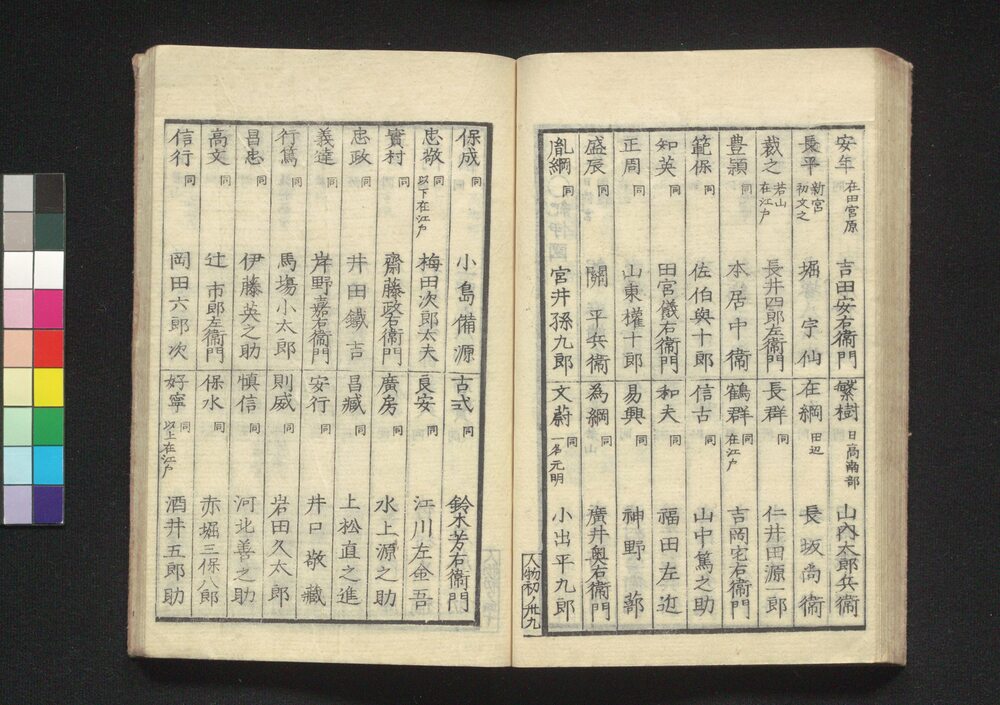 安年 在田宮原 吉田安右衛門 繁樹 日高南部 山内太郎兵衛
長平 新宮 初文之 堀 宇仙 在綱 田辺 長坂尚衛
裁之 若山 在江戸 長井四郎左衛門 長群 同 仁井田源一郎
豊穎 同 本居中衛 鶴群 同 在江戸 吉岡宅右衛門
範保 同 佐伯與十郎 信古 同 山中篤之助
知英 同 田宮儀右衛門 和夫 同 福田左
正周 同 山東權十郎 易興 同 神野 蔀
盛辰 同 關 平兵衛 為綱 同 廣井與右衛門
胤綱 同 宮井孫九郎 文蔚 同 一名元明 小出平九郎
人物初ノ卅九
保成 同 小島備源 古弍 同 鈴木芳右衛門
忠敬 同 以下在江戸 梅田次郎太夫 良安 同 江川左金吾
實村 同 齋藤政右衛門 廣房 同 水上源之助
忠政 同 井田鐵吉 昌臧 同 上松直之進
義達 同 岸野嘉右衛門 安行 同 井口敬藏
行篤 同 馬場小太郎 則威 同 岩田久太郎
昌忠 同 伊藤英之助 慎信 同 河北善之助
高文 同 辻 市郎左衛門 保水 同 赤堀三保八郎
信行 同 岡田六郎次 好寧 同 以上在江戸 酒井五郎助